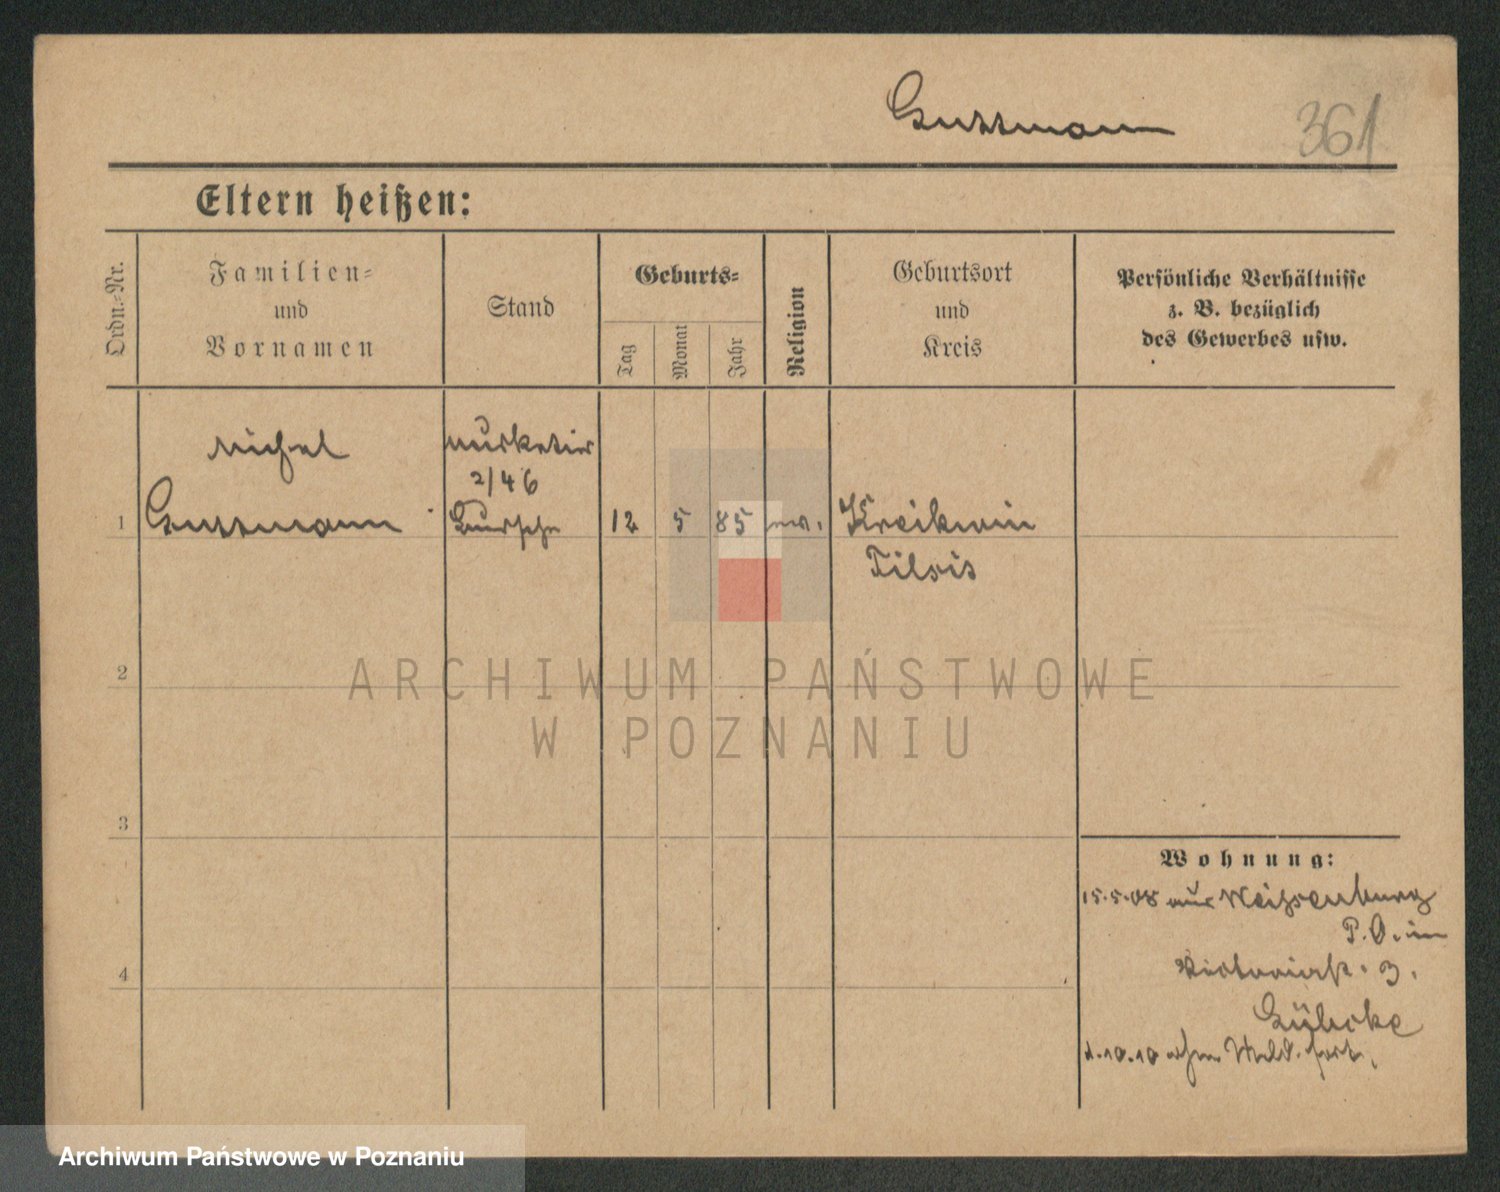 Gussmann 361
Eltern heißen:
Ordn.=Nr.
Familien=
und
Vornamen
Stand
Geburts=
Tag
Monat
Jahr
Religion
Geburtsort
und
Kreis
Persönliche Verhältnisse
z. B. bezüglich
des Gewerbes usw.
Michel
Musketier
2/46
1 Gussmann Bursche 12 5 85 ev.
Tilsit
2
3
4
Wohnung:
15.5.08 aus Weissenburg
P. O. in
Victoriastr. 3.
1.10.10 ohne Meld. fort.
ARCHIWUM PAŃSTWOWE
W POZNANIU
Archiwum Państwowe w Poznaniu